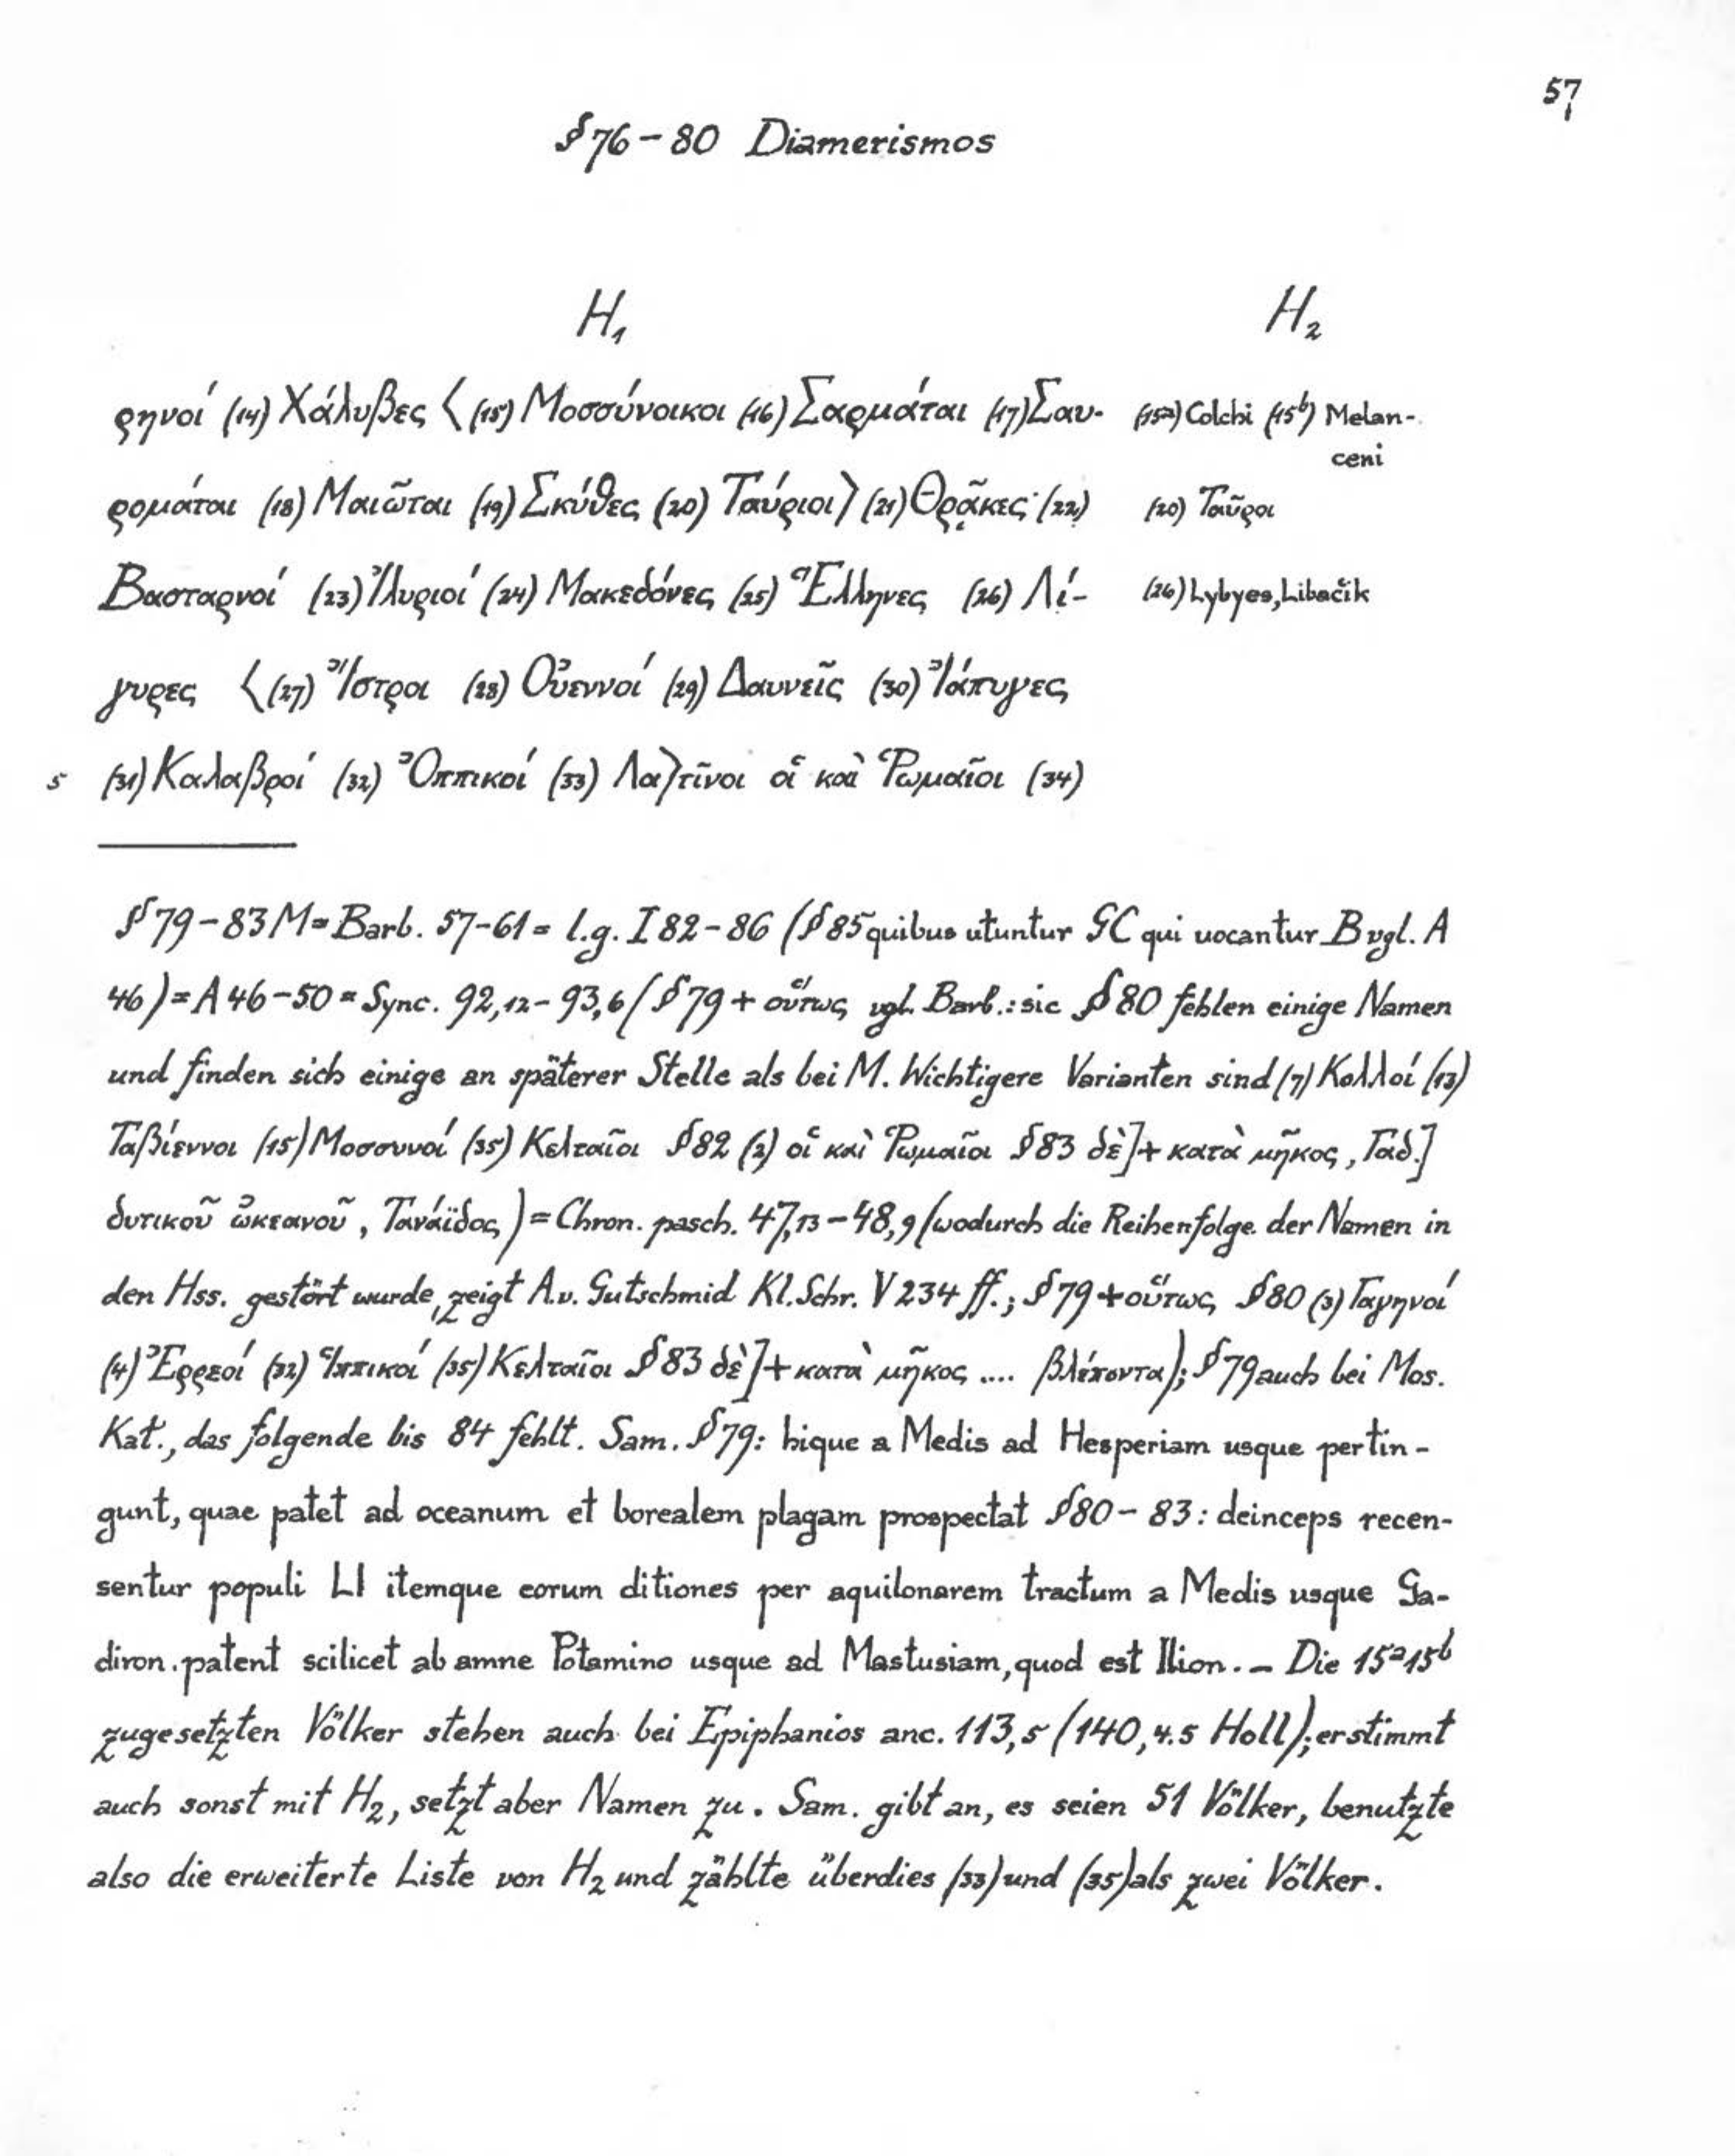 57
§ 76 – 80 Diamerismos
H₁ H₂
ρηνοί (14) Χάλυβες ⟨(15) Μοσσύνοικοι (16) Σαρμάται (17) Σαυ- (15ᵃ) Colchi (15ᵇ) Melan-
ceni
ρομάται (18) Μαιῶται (19) Σκύθες (20) Ταύριοι⟩ (21) Θρᾷκες (22) (20) Ταῦροι
Βασταρνοί (23) Ἰλυριοί (24) Μακεδόνες (25) Ἕλληνες (26) Λί- (26) Lybyes, Libačik
γυρες ⟨(27) Ἴστροι (28) Οὐεννοί (29) Δαυνεῖς (30) Ἰάπυγες
5 (31) Καλαβροί (32) Ὀππικοί (33) Λα⟩τῖνοι οἳ καὶ Ῥωμαῖοι (34)
§ 79 – 83 M = Barb. 57–61 = l.g. I 82 – 86 (§ 85 quibus utuntur GC qui uocantur B vgl. A
46) = A 46 – 50 = Sync. 92,12 – 93,6 (§ 79 + οὕτως vgl. Barb.: sic § 80 fehlen einige Namen
und finden sich einige an späterer Stelle als bei M. Wichtigere Varianten sind (7) Κολλοί (13)
Ταβίεννοι (15) Μοσσυνοί (35) Κελταῖοι § 82 (2) οἳ καὶ Ῥωμαῖοι § 83 δὲ] + κατὰ μῆκος, Γάδ.]
δυτικοῦ ὠκεανοῦ, Τανάϊδος) = Chron. pasch. 47,13 – 48,9 (wodurch die Reihenfolge der Namen in
den Hss. gestört wurde, zeigt A.v. Gutschmid Kl. Schr. V 234 ff.; § 79 + οὕτως § 80 (3) Γαγηνοί
(4) Ἐρρεοί (32) Ἱππικοί (35) Κελταῖοι § 83 δὲ] + κατὰ μῆκος .... βλέποντα); § 79 auch bei Mos.
Kat., das folgende bis 84 fehlt. Sam. § 79: hique a Medis ad Hesperiam usque pertin-
gunt, quae patet ad oceanum et borealem plagam prospectat § 80 – 83: deinceps recen-
sentur populi LI itemque eorum ditiones per aquilonarem tractum a Medis usque Ga-
diron. patent scilicet ab amne Potamino usque ad Mastusiam, quod est Ilion. – Die 15ᵃ 15ᵇ
zugesetzten Völker stehen auch bei Epiphanios anc. 113,5 (140,4.5 Holl); er stimmt
auch sonst mit H₂, setzt aber Namen zu. Sam. gibt an, es seien 51 Völker, benutzte
also die erweiterte Liste von H₂ und zählte überdies (33) und (35) als zwei Völker.